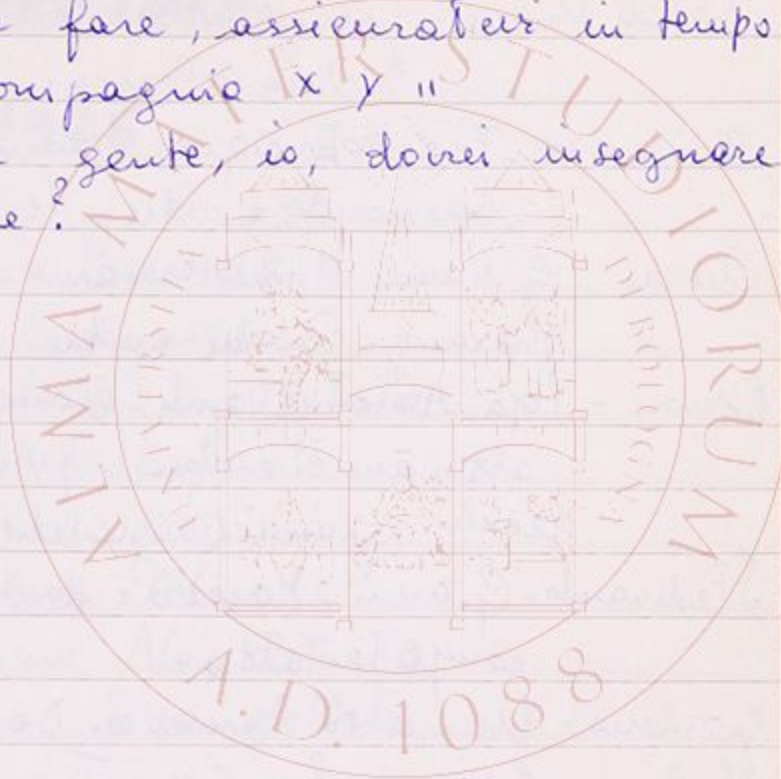 fare, assicuratevi in tempo
ompagnia X Y "
gente, io, dovrei insegnare
e?
ALMA MATER STUDIORUM
UNIVERSITÀ DI BOLOGNA
A.D. 1088